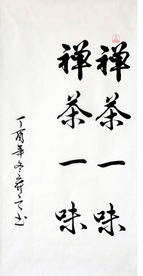 禅茶一味
禅茶一味
丁酉年冬
书